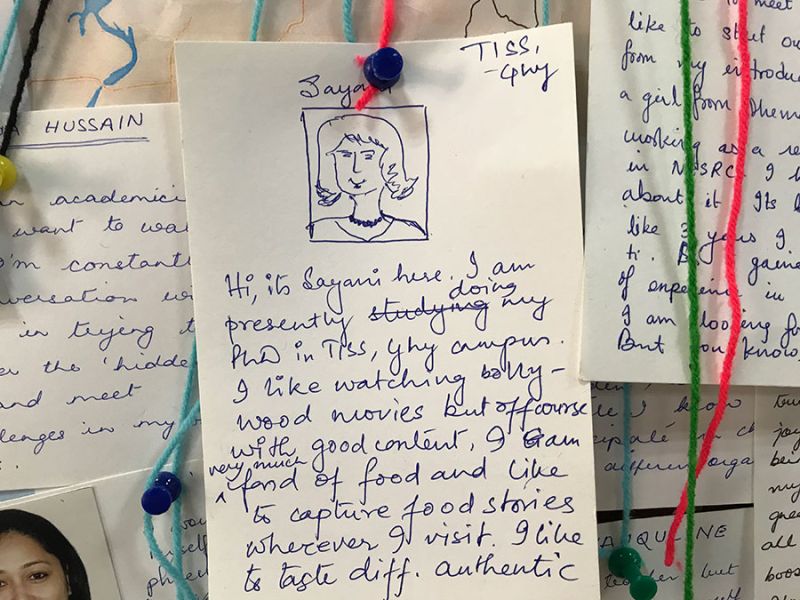 HUSSAIN
an academici
want to wa
I'm constantl
nversation wi
in trying t
er the 'hidde
and meet
llenges in my
TISS,
-Ghy
Sayani
Hi, its Sayani here. I am
presently studying doing my
PhD in TISS, Ghy campus.
I like watching bolly-
wood movies but offcourse
with good content. I am
very much
fond of food and like
to capture food stories
wherever I visit. I like
to taste diff. authentic
to meet
like to start ou
from my introduc
a girl from
working as a re
in I
about it. Its
like 3 years I
ti. gaine
of experience in
I am looking for
But you know
I know
different orga